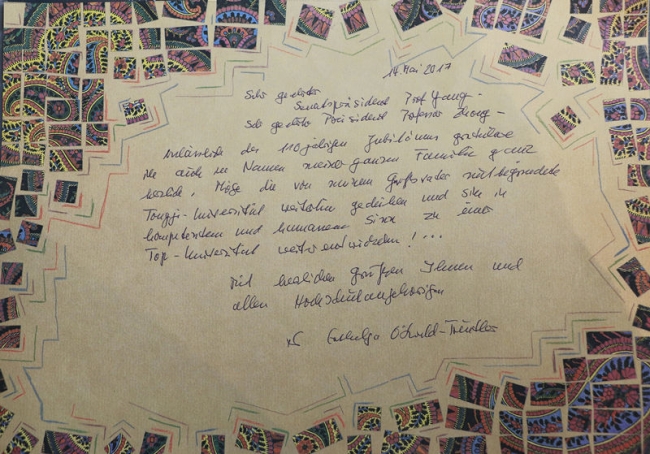 14. Mai 2017
Sehr geehrter
Senatspräsident Prof. Yang –
Sehr geehrter Präsident Professor Zhong –
Anlässlich des 110jährigen Jubiläums gratuliere
ich auch im Namen meiner ganzen Familie ganz
herzlich. Möge die von meinem Großvater mitbegründete
Tongji-Universität weiterhin gedeihen und sich in
kompetentem und humanem Sinn zu einer
Top-Universität weiterentwickeln! ...
Mit herzlichen Grüßen Ihnen und
allen Hochschulangehörigen
Oswald-